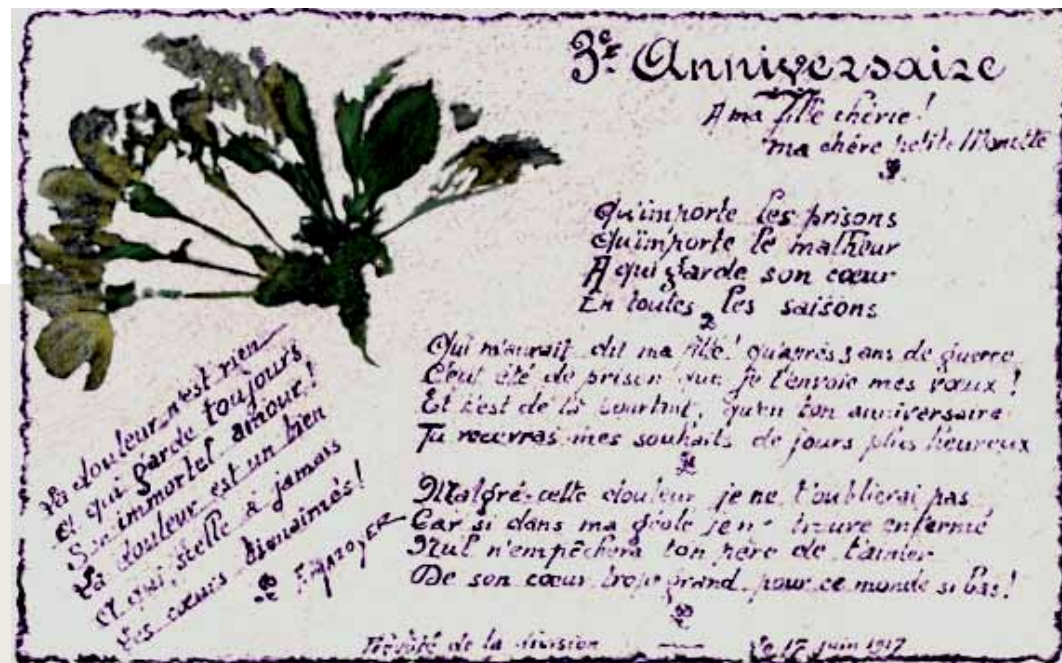 3e Anniversaire
A ma fille chérie!
ma chère petite
Qu'importe les prisons
Qu'importe le malheur
A qui garde son cœur
En toutes les saisons
2
Qui m'aurait dit ma fille! qu'après 3 ans de guerre
C'eut été de prison que je t'envoie mes vœux!
Et c'est de là pourtant, qu'en ton anniversaire
Tu recevras mes souhaits de jours plus heureux
Malgré cette douleur je ne t'oublierai pas
Car si dans ma geôle je enfermé
Nul n'empêchera ton père de t'aimer
De son cœur trop grand pour ce monde si bas!
La douleur n'est rien
A qui garde toujours
Son immortel amour!
La douleur est un bien
A qui scelle à jamais
Les cœurs bienaimés!
de la division le 17 juin 1917